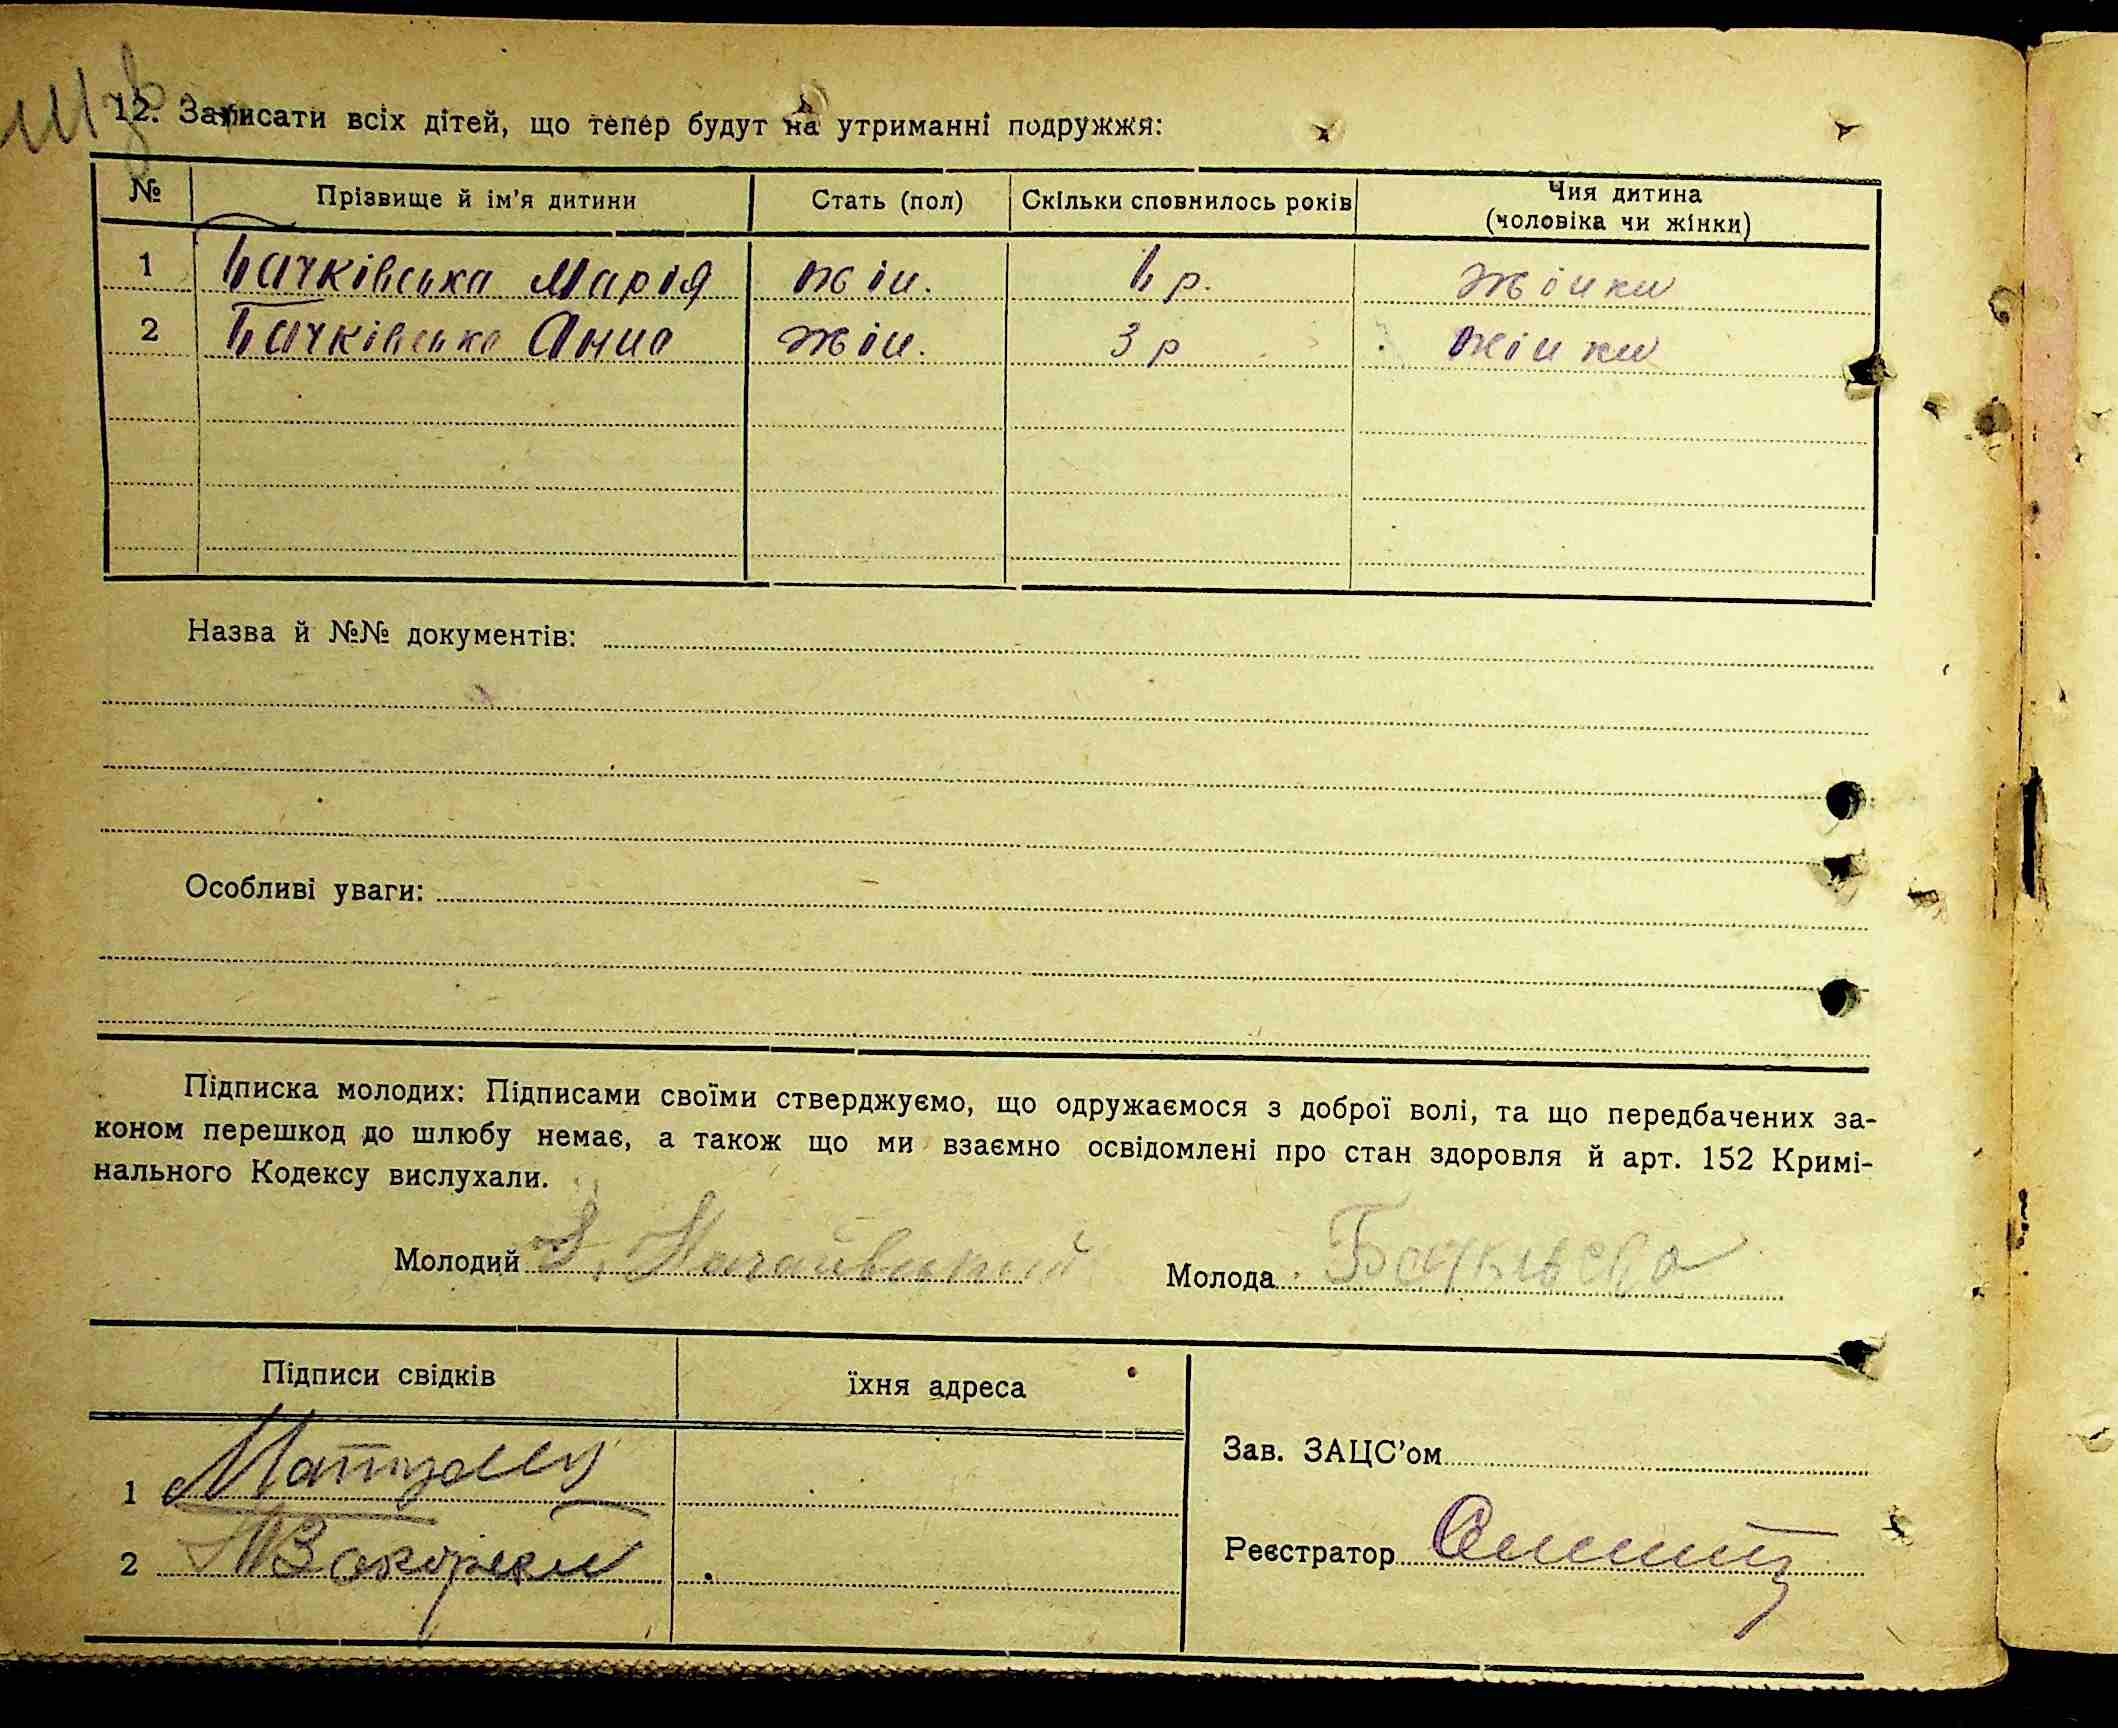 12. Записати всіх дітей, що тепер будут на утриманні подружжя:
№ Прізвище й ім'я дитини Стать (пол) Скільки сповнилось років Чия дитина
(чоловіка чи жінки)
1 Бачківська Марія жін. р. жінки
2 Бачківська Анна жін. 3 р жінки
Назва й №№ документів:
Особливі уваги:
Підписка молодих: Підписами своїми стверджуємо, що одружаємося з доброї волі, та що передбачених за-
коном перешкод до шлюбу немає, а також що ми взаємно освідомлені про стан здоровля й арт. 152 Кримі-
нального Кодексу вислухали.
Молодий Молода
Підписи свідків їхня адреса
Зав. ЗАЦС'ом
1
Реєстратор
2